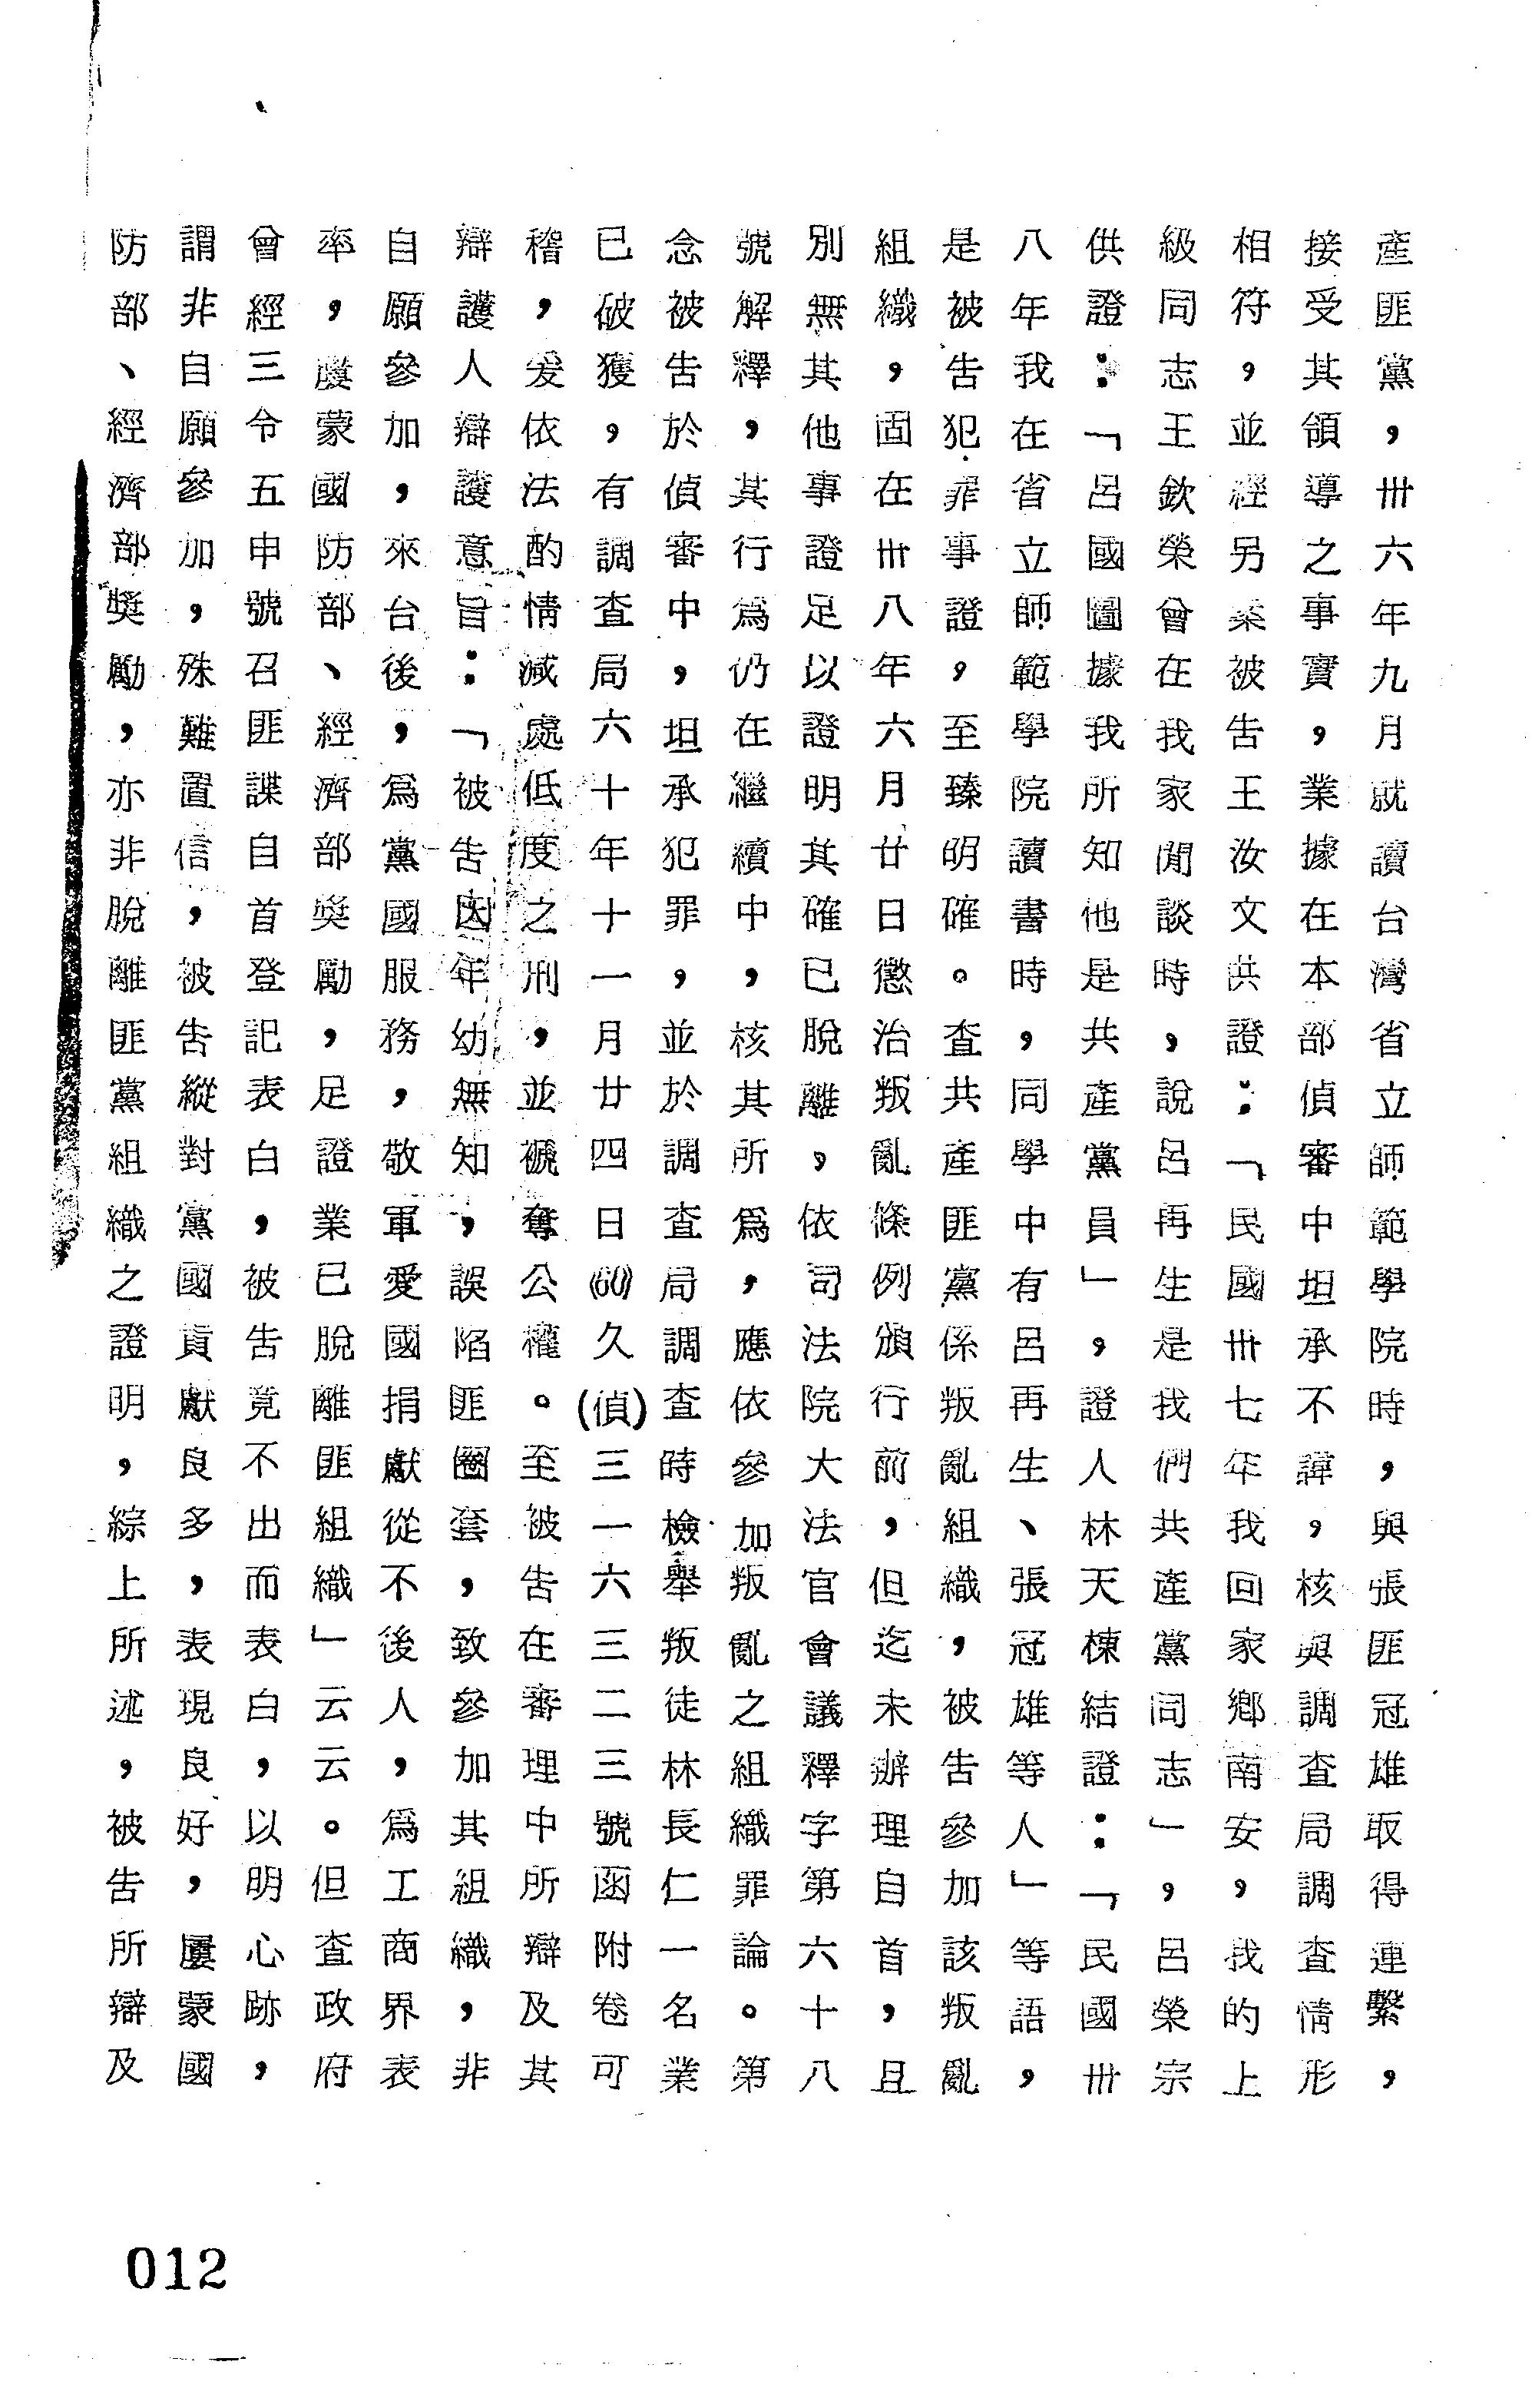 產匪黨，卅六年九月就讀台灣省立師範學院時，與張匪冠雄取得連繫，
接受其領導之事實，業據在本部偵審中坦承不諱，核與調查局調查情形
相符，並經另案被告王汝文供證：「民國卅七年我回家鄉南安，我的上
級同志王欽榮曾在我家閒談時，說呂再生是我們共產黨同志」，呂榮宗
供證：「呂國圖據我所知他是共產黨員」，證人林天棟結證：「民國卅
八年我在省立師範學院讀書時，同學中有呂再生、張冠雄等人」等語，
是被告犯罪事證，至臻明確。查共產匪黨係叛亂組織，被告參加該叛亂
組織，固在卅八年六月廿日懲治叛亂條例頒行前，但迄未辦理自首，且
別無其他事證足以證明其確已脫離，依司法院大法官會議釋字第六十八
號解釋，其行為仍在繼續中，核其所為，應依參加叛亂之組織罪論。第
念被告於偵審中，坦承犯罪，並於調查局調查時檢舉叛徒林長仁一名業
已破獲，有調查局六十年十一月廿四日(60)久(偵)三一六三二三號函附卷可
稽，爰依法酌情減處低度之刑，並褫奪公權。至被告在審理中所辯及其
辯護人辯護意旨：「被告因年幼無知，誤陷匪圈套，致參加其組織，非
自願參加，來台後，為黨國服務，敬軍愛國捐獻從不後人，為工商界表
率，屢蒙國防部、經濟部獎勵，足證業已脫離匪組織」云云。但查政府
曾經三令五申號召匪諜自首登記表白，被告竟不出而表白，以明心跡，
謂非自願參加，殊難置信，被告縱對黨國貢獻良多，表現良好，屢蒙國
防部、經濟部獎勵，亦非脫離匪黨組織之證明，綜上所述，被告所辯及
012